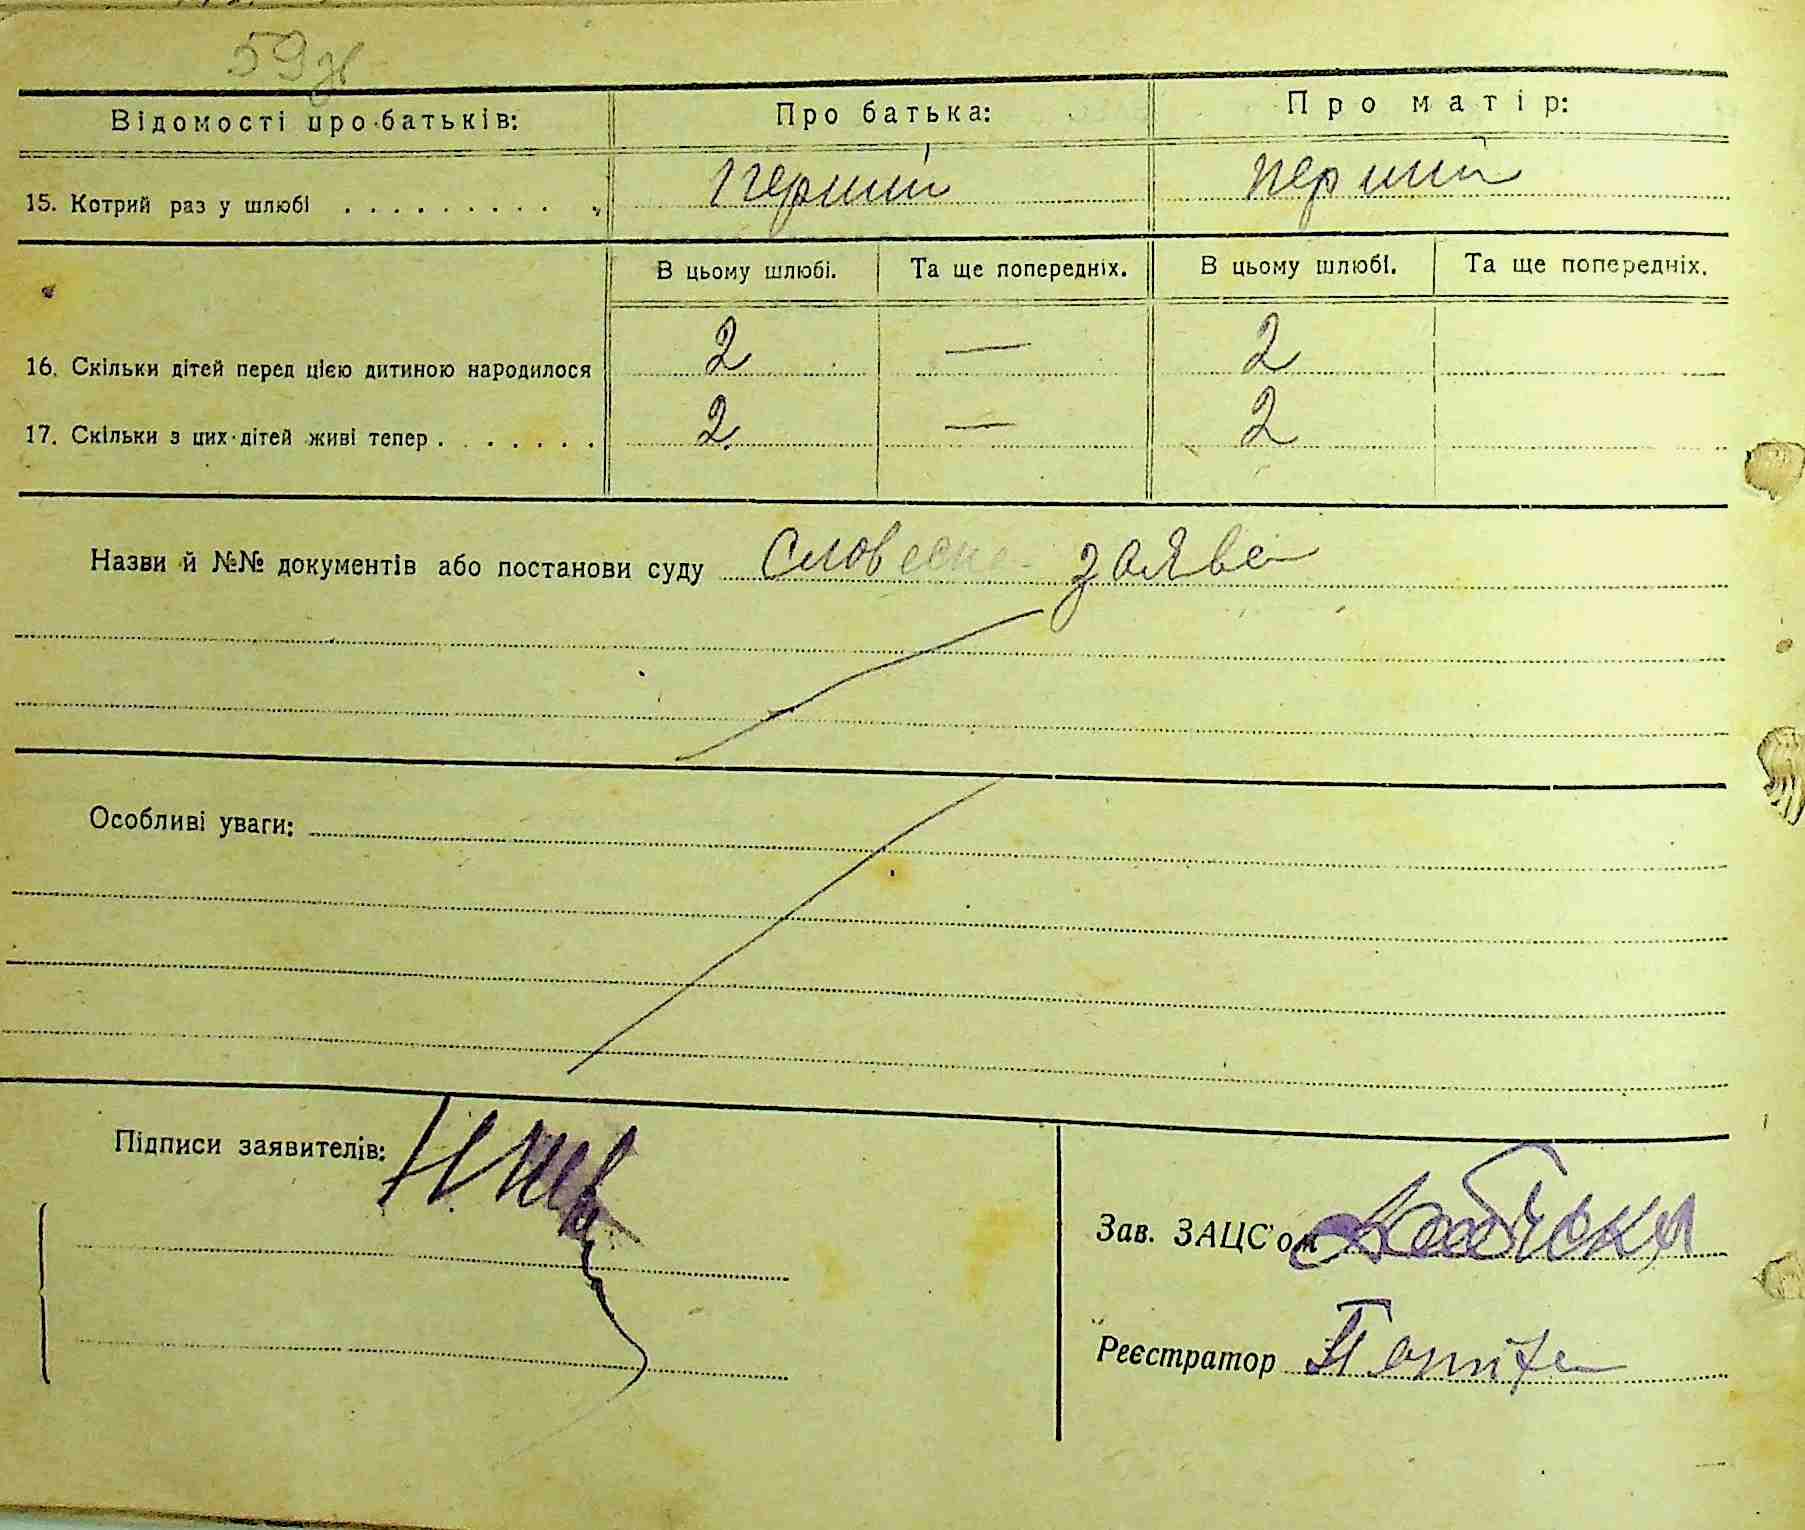 59
Відомості про батьків: Про батька: Про матір:
15. Котрий раз у шлюбі . . . . . . . . . . перший перший
В цьому шлюбі. Та ще попередніх. В цьому шлюбі. Та ще попередніх.
16. Скільки дітей перед цією дитиною народилося 2 — 2
17. Скільки з цих дітей живі тепер . . . . . . . 2 — 2
Назви й №№ документів або постанови суду Словесна заява
Особливі уваги:
Підписи заявителів:
Зав. ЗАЦС'ом
Реєстратор